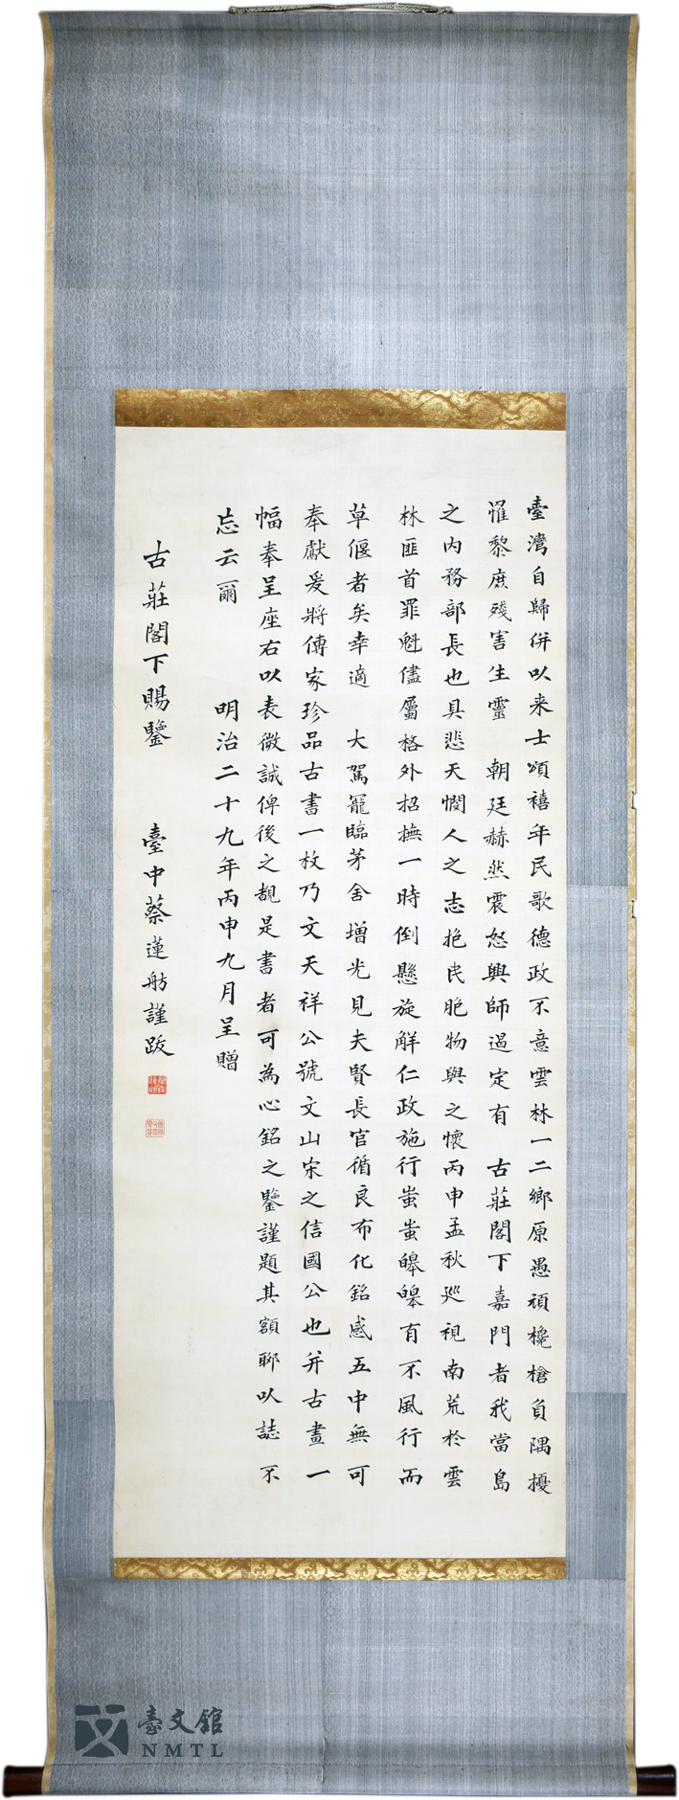 臺灣自歸併以来士頌禧年民歌德政不意雲林一二鄉原愚頑欃槍負隅擾
罹黎庶殘害生靈 朝廷赫然震怒興師過定有 古莊閣下嘉門者我當島
之内務部長也具悲天憫人之志抱民胞物與之懷丙申孟秋巡視南荒於雲
林匪首罪魁儘屬格外招撫一時倒懸旋解仁政施行蚩蚩皥皥有不風行而
草偃者矣幸適 大駕寵臨茅舍增光見夫賢長官循良布化銘感五中無可
奉獻爰將傳家珍品古書一枚乃文天祥公號文山宋之信國公也并古畫一
幅奉呈座右以表微誠俾後之覩是書者可為心銘之鑒謹題其額聊以誌不
忘云爾 明治二十九年丙申九月呈贈
古莊閣下賜鑒 臺中蔡蓮舫謹跋
臺文館
NMTL